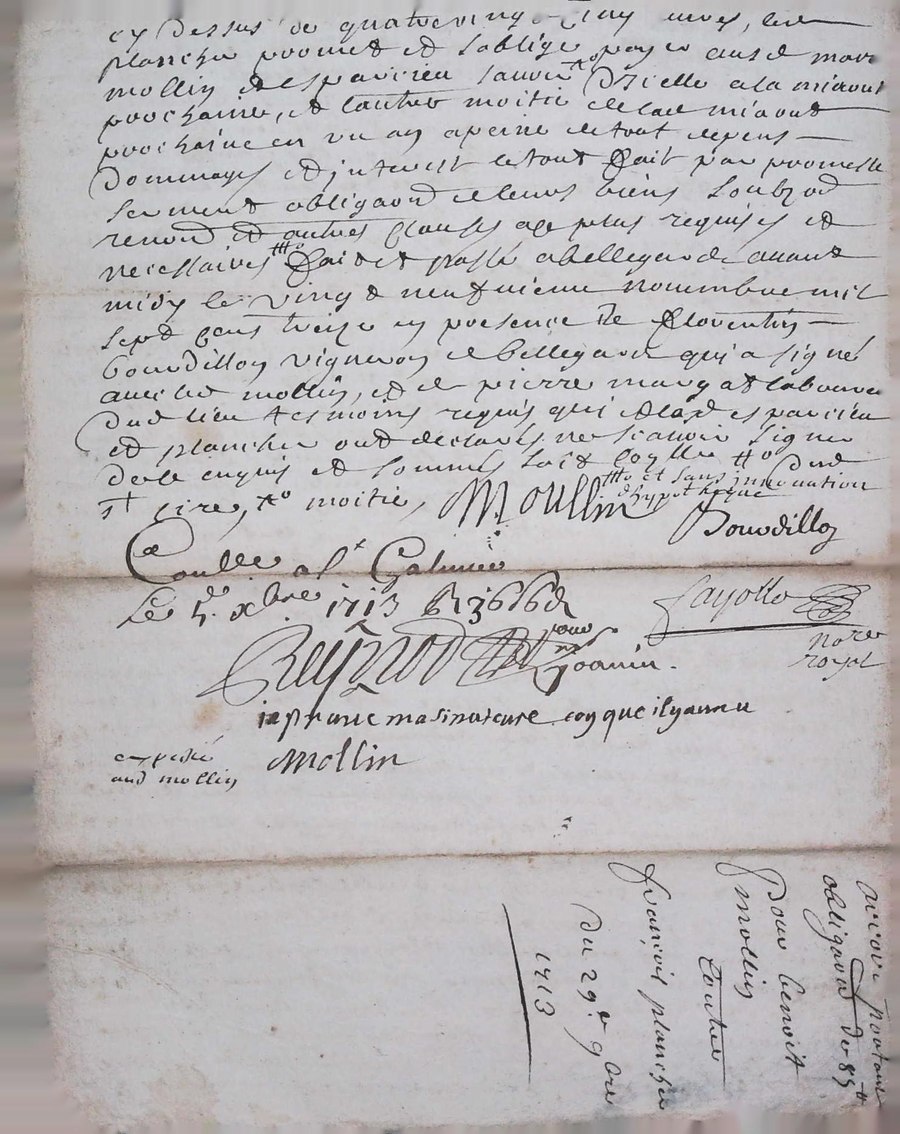 cy dessus de quatrevingt cinq livres, led
planche promet et soblige payer aud mar
mollin et esparcieu scavoir xo dicelle a la miaout
prochaine, et lautre moitie de lad miaout
prochaine en un an a peine de tout depens
dommages et interest le tout fait par promesse
serment obligaon de leurs biens soubz
renon et autres clauses a ce plus requises et
necessaires ttto fait et passé a bellegarde avant
midy le vingt neufvieme novembre mil
sept cens treize en presence de Florentin
bourdillon vigneron de bellegarde qui a signé
avec led mollin, et de pierre margat laboureur
dud lieu tesmoins requis qui et lad esparcieu
et planche ont declarés ne scavoir signer
de ce enquis et sommés soit tto dud
xo moitie,
ttto et sans innovation
dhypotheque
Moullin
Bourdillon
Coulle a st Galmier
Le 5. xbre 1713
Fayolle
nore
royal
Reynod
Joanin.
mollin
expedié
aud mollin
portant
obligaon de 85 tt
Pour benoit
mollin
Contre
françois planche
du 29e 9bre
1713